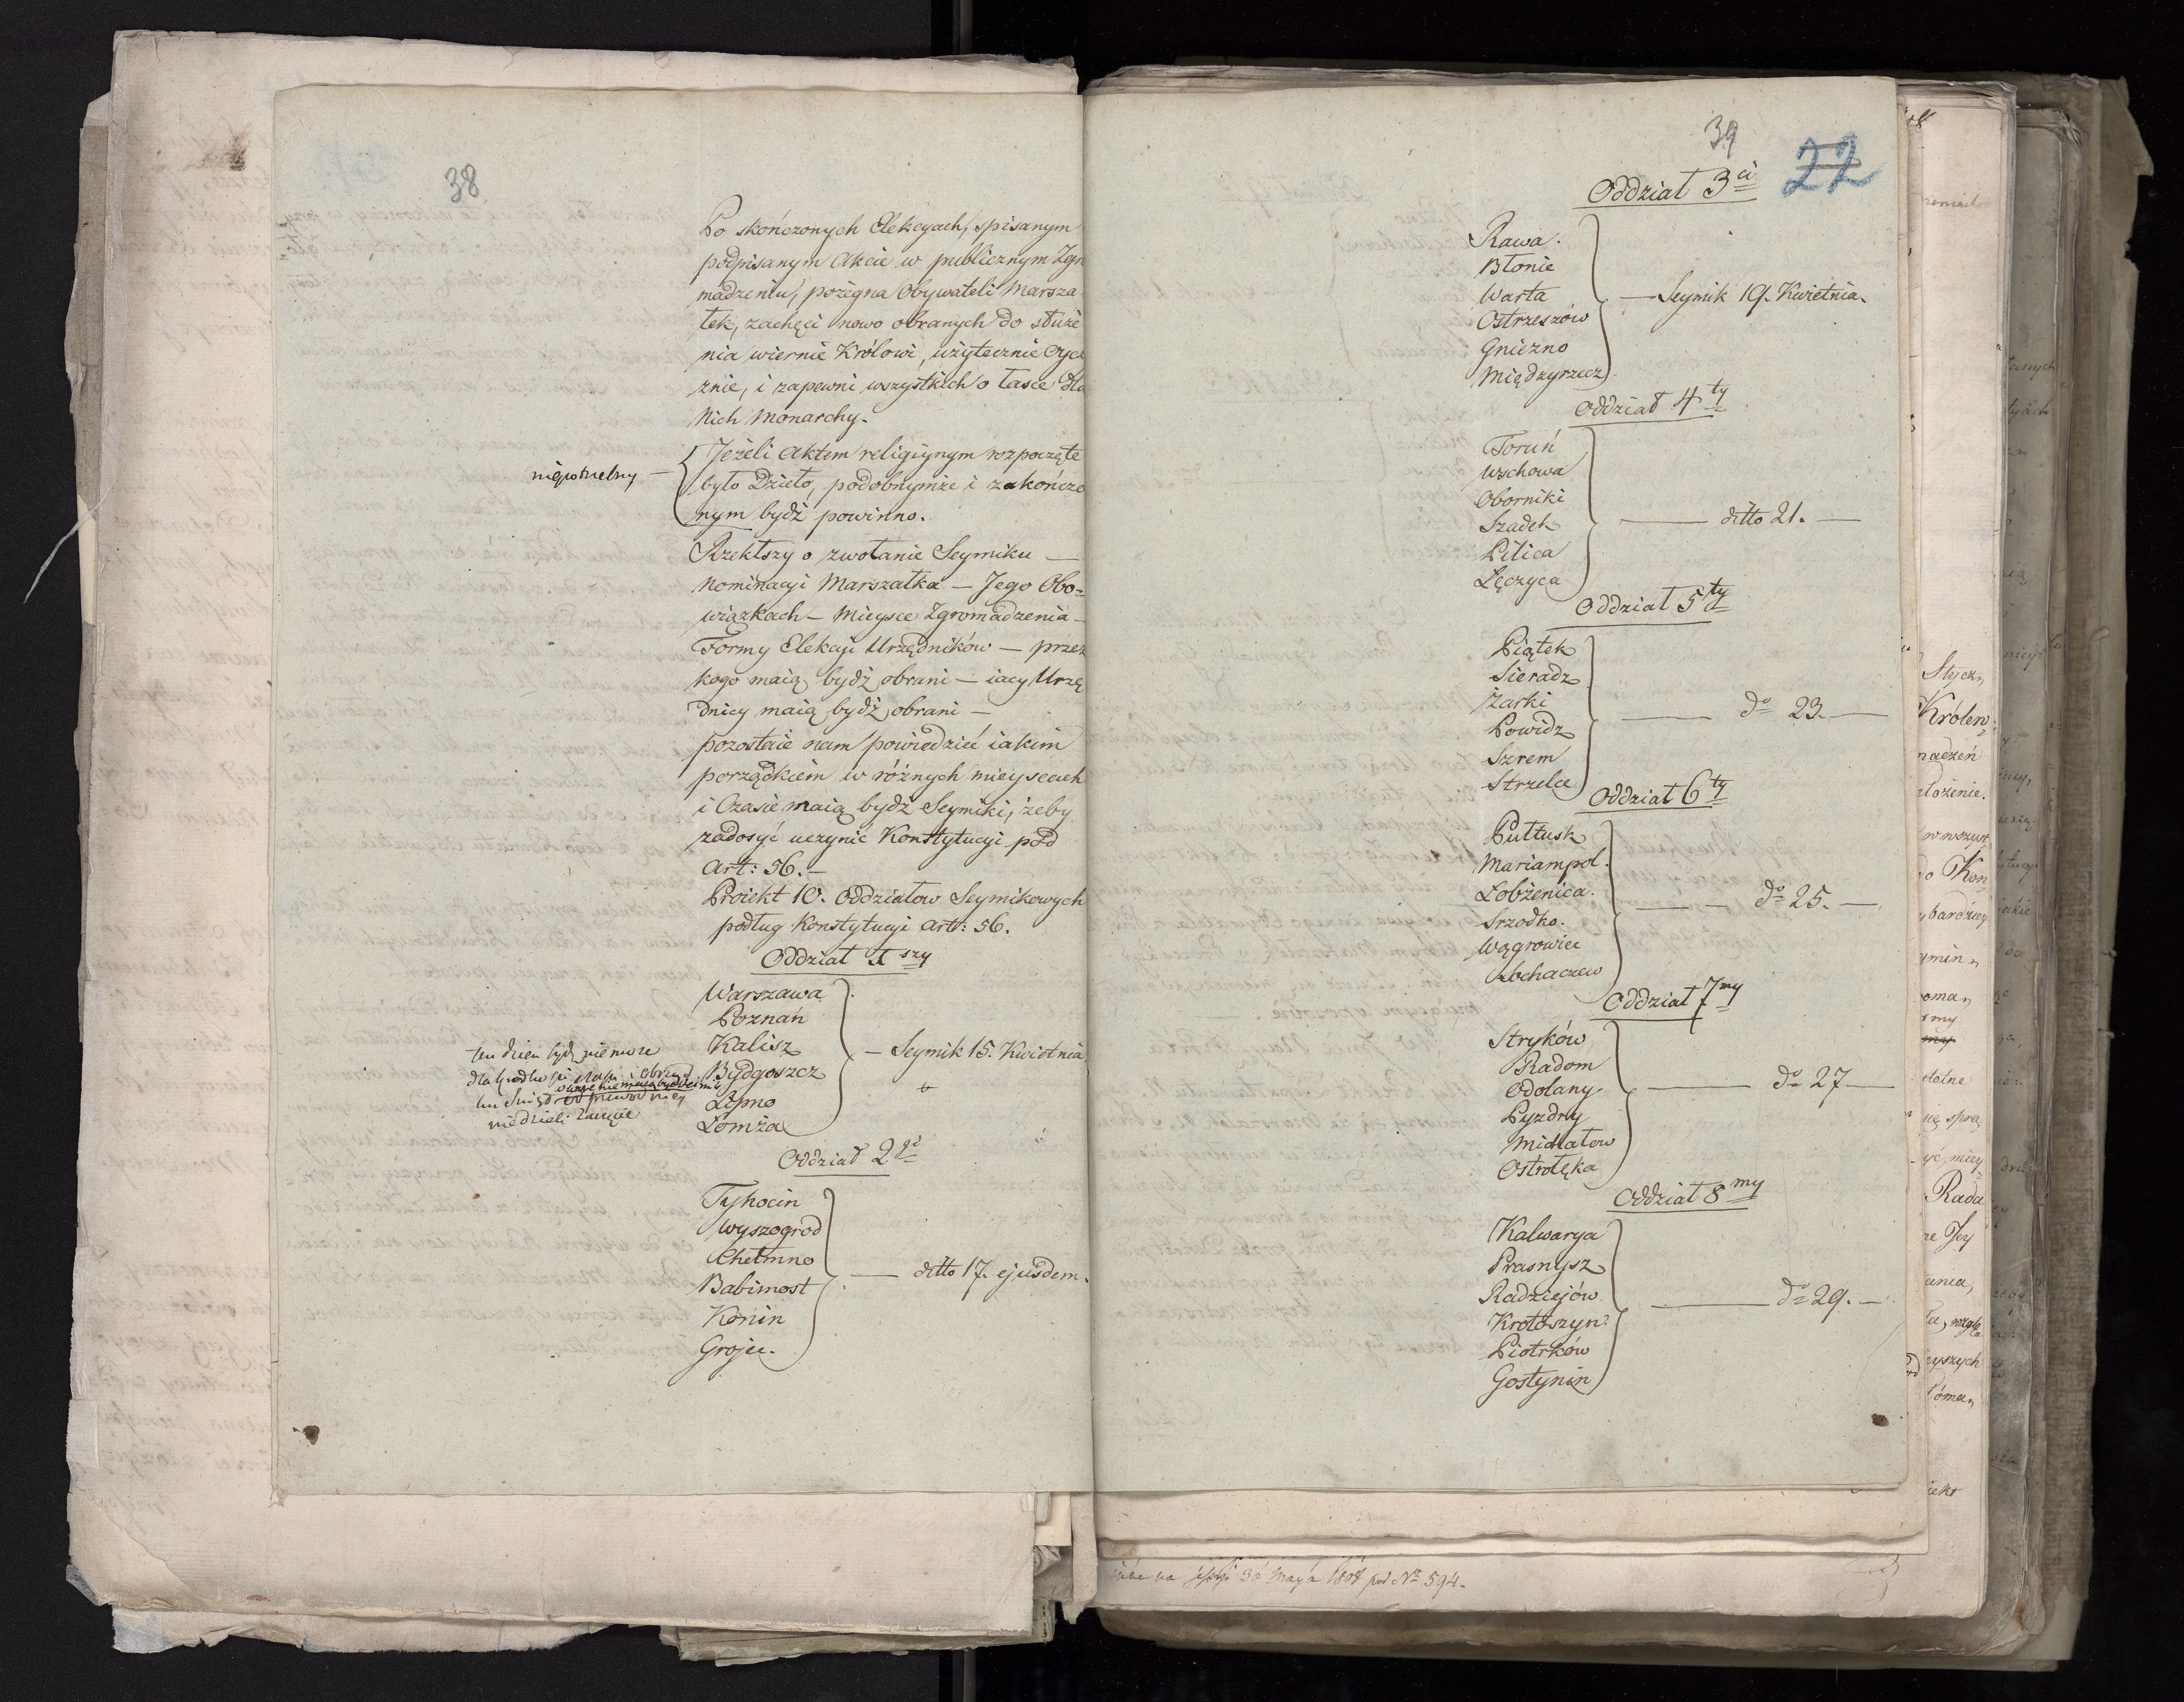 38
Po skończonych Elekcyach, spisanym
podpisanym Akcie w publicznym Zgro
madzeniu, pożegna Obywateli Marsza
łek, zachęci nowo obranych do służe
nia wiernie Królowi, użytecznie Oyczy
znie, i zapewni wszystkich o łasce dla
Nich Monarchy.
niepotrzebny —
Jeżeli Aktem religiynym rozpoczęte
było Dzieło, podobnymże i zakończo
nym bydź powinno.
Rzekłszy o zwołanie Seymiku —
Nominacyi Marszałka — Jego Obo=
wiązkach — Mieysce Zgromadzenia —
Formy Elekcyi Urzędników — przez
kogo maią bydź obrani — iacy Urzę
dnicy maią bydź obrani —
pozostaie nam powiedzieć iakim
porządkiem w różnych mieyscach
i Czasie maią bydź Seymiki, żeby
zadosyć uczynić Konstytucyi pod
Art: 56. —
Proiekt 10. Oddziałow Seymikowych
podług Konstytucyi Art: 56.
Oddział 1szy
Warszawa
Poznań
Kalisz
Bydgoszcz
Lipno
Łomża
— Seymik 15. Kwietnia
ten dzien bydź nie może
niedzieli zacząć
Oddział 2gi
Tykocin
Wyszogrod
Chełmno
Babimost
Konin
Grojec.
— ditto 17. ejusdem.
39
22
Oddział 3ci
Rawa.
Błonie
Warta
Ostrzeszów
Gniezno
Międzyrzecz
— Seymik 19. Kwietnia.
Oddział 4ty
Toruń
Wschowa
Oborniki
Szadek
Pilica
Łęczyca
— ditto 21. —
Oddział 5ty
Piątek
Sieradz
Żarki
Powidz
Szrem
Strzelce
— do 23. —
Oddział 6ty
Pułtusk
Mariampol.
Łobżenica.
Srzodko.
Wągrowiec
Sochaczew
— — do 25. —
Oddział 7my
Stryków
Radom
Odolany
Pyzdry
Ostrołęka
— do 27 —
Oddział 8my
Kalwarya
Prasnysz
Radziejów
Krotoszyn
Piotrków
Gostynin
— do 29. —
30 Maya 1808 pod No 594.